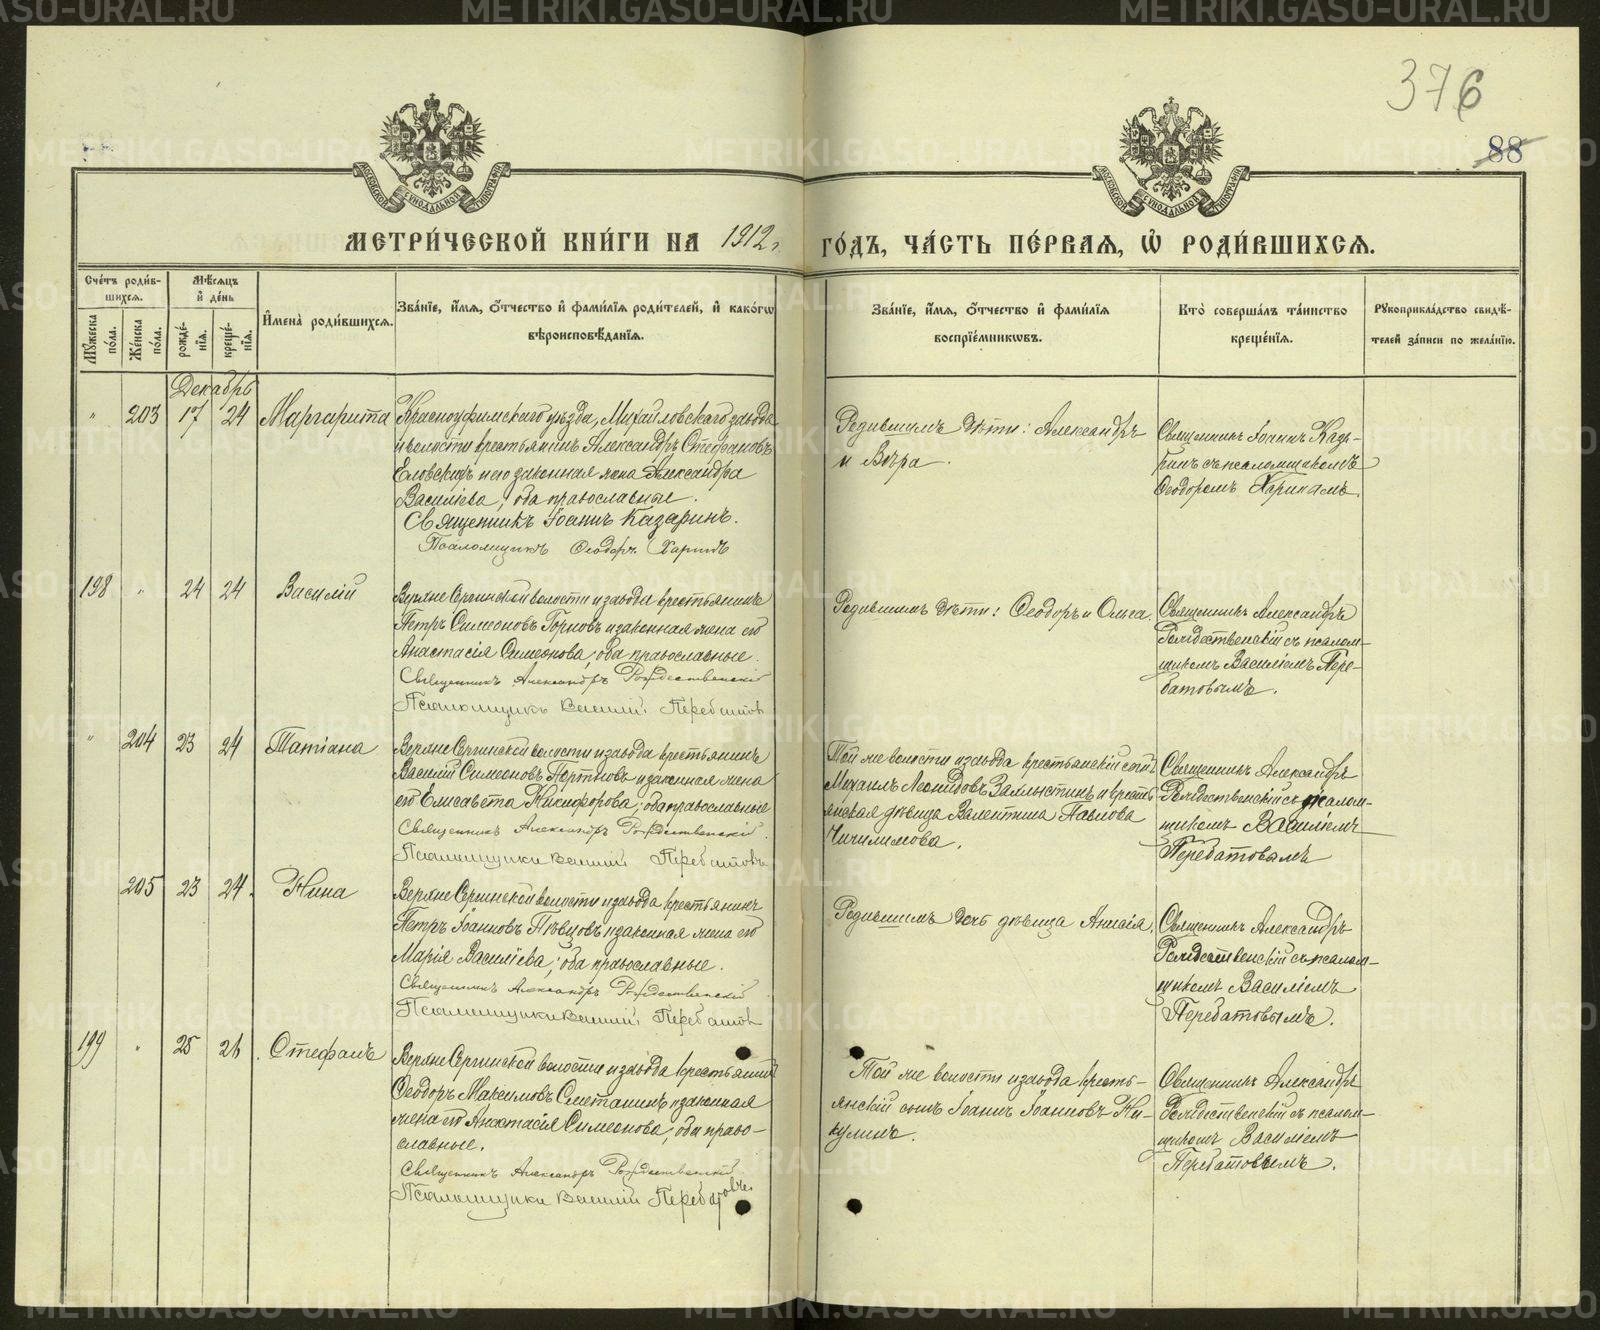 376
88
МЕТРИ́ЧЕСКОЙ КНИ́ГИ НА 1912 г. ГО́ДЪ, ЧА́СТЬ ПЕ́РВАЯ, Ѡ РОДИ́ВШИХСЯ.
Сче́тъ роди́в-
шихся.
Мѣ́сяцъ
и де́нь
Мꙋ́жеска по́ла.
Же́нска по́ла.
рожде́-
нїя.
креще́-
нїя.
Имена̀ роди́вшихся.
Зва́нїе, и́мя, ѻ́тчество и фами́лїя роди́телей, и како́гѡ
вѣроисповѣ́данїя.
Зва́нїе, и́мя, ѻ́тчество и фами́лїя
воспрїе́мникѡвъ.
Кто̀ соверша́лъ та́инство
креще́нїя.
Рꙋкоприкла́дство свидѣ́-
телей за́писи по жела́нїю.
Декабрь
" 203 17 24 Маргарита
Красноуфимскаго уѣзда, Михайловскаго завода
и волости крестьянинъ Александръ Стефановъ
Еловскихъ и его законная жена Александра
Василiева, оба православные.
Священникъ Iоаннъ Казаринъ.
Псаломщикъ Ѳеодоръ Харинъ
Родившимъ дѣти: Александръ
и Вѣра.
Священникъ Iоаннъ Каза-
ринъ съ псаломщикомъ
Ѳеодоромъ Харинамъ.
198 " 24 24 Василiй
Верхне Сергинской волости и завода крестьянинъ
Петръ Симеоновъ Горновъ и законная жена его
Анастасiя Симеонова, оба православные.
Священникъ Александръ Рождественскiй
Псаломщикъ Василiй Перебатовъ
Родившимъ дѣти: Ѳеодоръ и Ольга.
Священникъ Александръ
Рождественскiй съ псалом-
щикомъ Василiемъ Пере-
батовымъ.
" 204 23 24 Татiана
Верхне Сергинской волости и завода крестьянинъ
Василiй Симеоновъ Портновъ и законная жена
его Елисавета Никифорова; оба православные
Священникъ Александръ Рождественскiй.
Псаломщикъ Василiй Перебатовъ
Той же волости и завода крестьянскiй сынъ
Михаилъ Леонидовъ Захлыстинъ и кресть-
янская дѣвица Валентина Павлова
Чичилимова.
Священникъ Александръ
Рождественскiй съ псалом-
щикомъ Василiемъ
Перебатовымъ
205 23 24. Нина
Верхне Сергинской волости и завода крестьянинъ
Петръ Iоанновъ Пѣвцовъ и законная жена его
Марiя Василiева; оба православные.
Священникъ Александръ Рождественскiй
Псаломщикъ Василiй Перебатовъ
Родившимъ дочь дѣвица Анисiя.
Священникъ Александръ
Рождественскiй съ псалом-
щикомъ Василiемъ
Перебатовымъ.
199 " 25 26 Стефанъ
Верхне Сергинской волости и завода крестьянинъ
Ѳеодоръ Максимовъ Сметанинъ и законная
жена его Анастасiя Симеонова, оба право-
славные.
Священникъ Александръ Рождественскiй.
Псаломщикъ Василiй Перебатовъ.
Той же волости и завода кресть-
янскiй сынъ Iоаннъ Iоанновъ Ни-
кулинъ.
Священникъ Александръ
Рождественскiй съ псалом-
щикомъ Василiемъ
Перебатовымъ.
METRIKI.GASO-URAL.RU